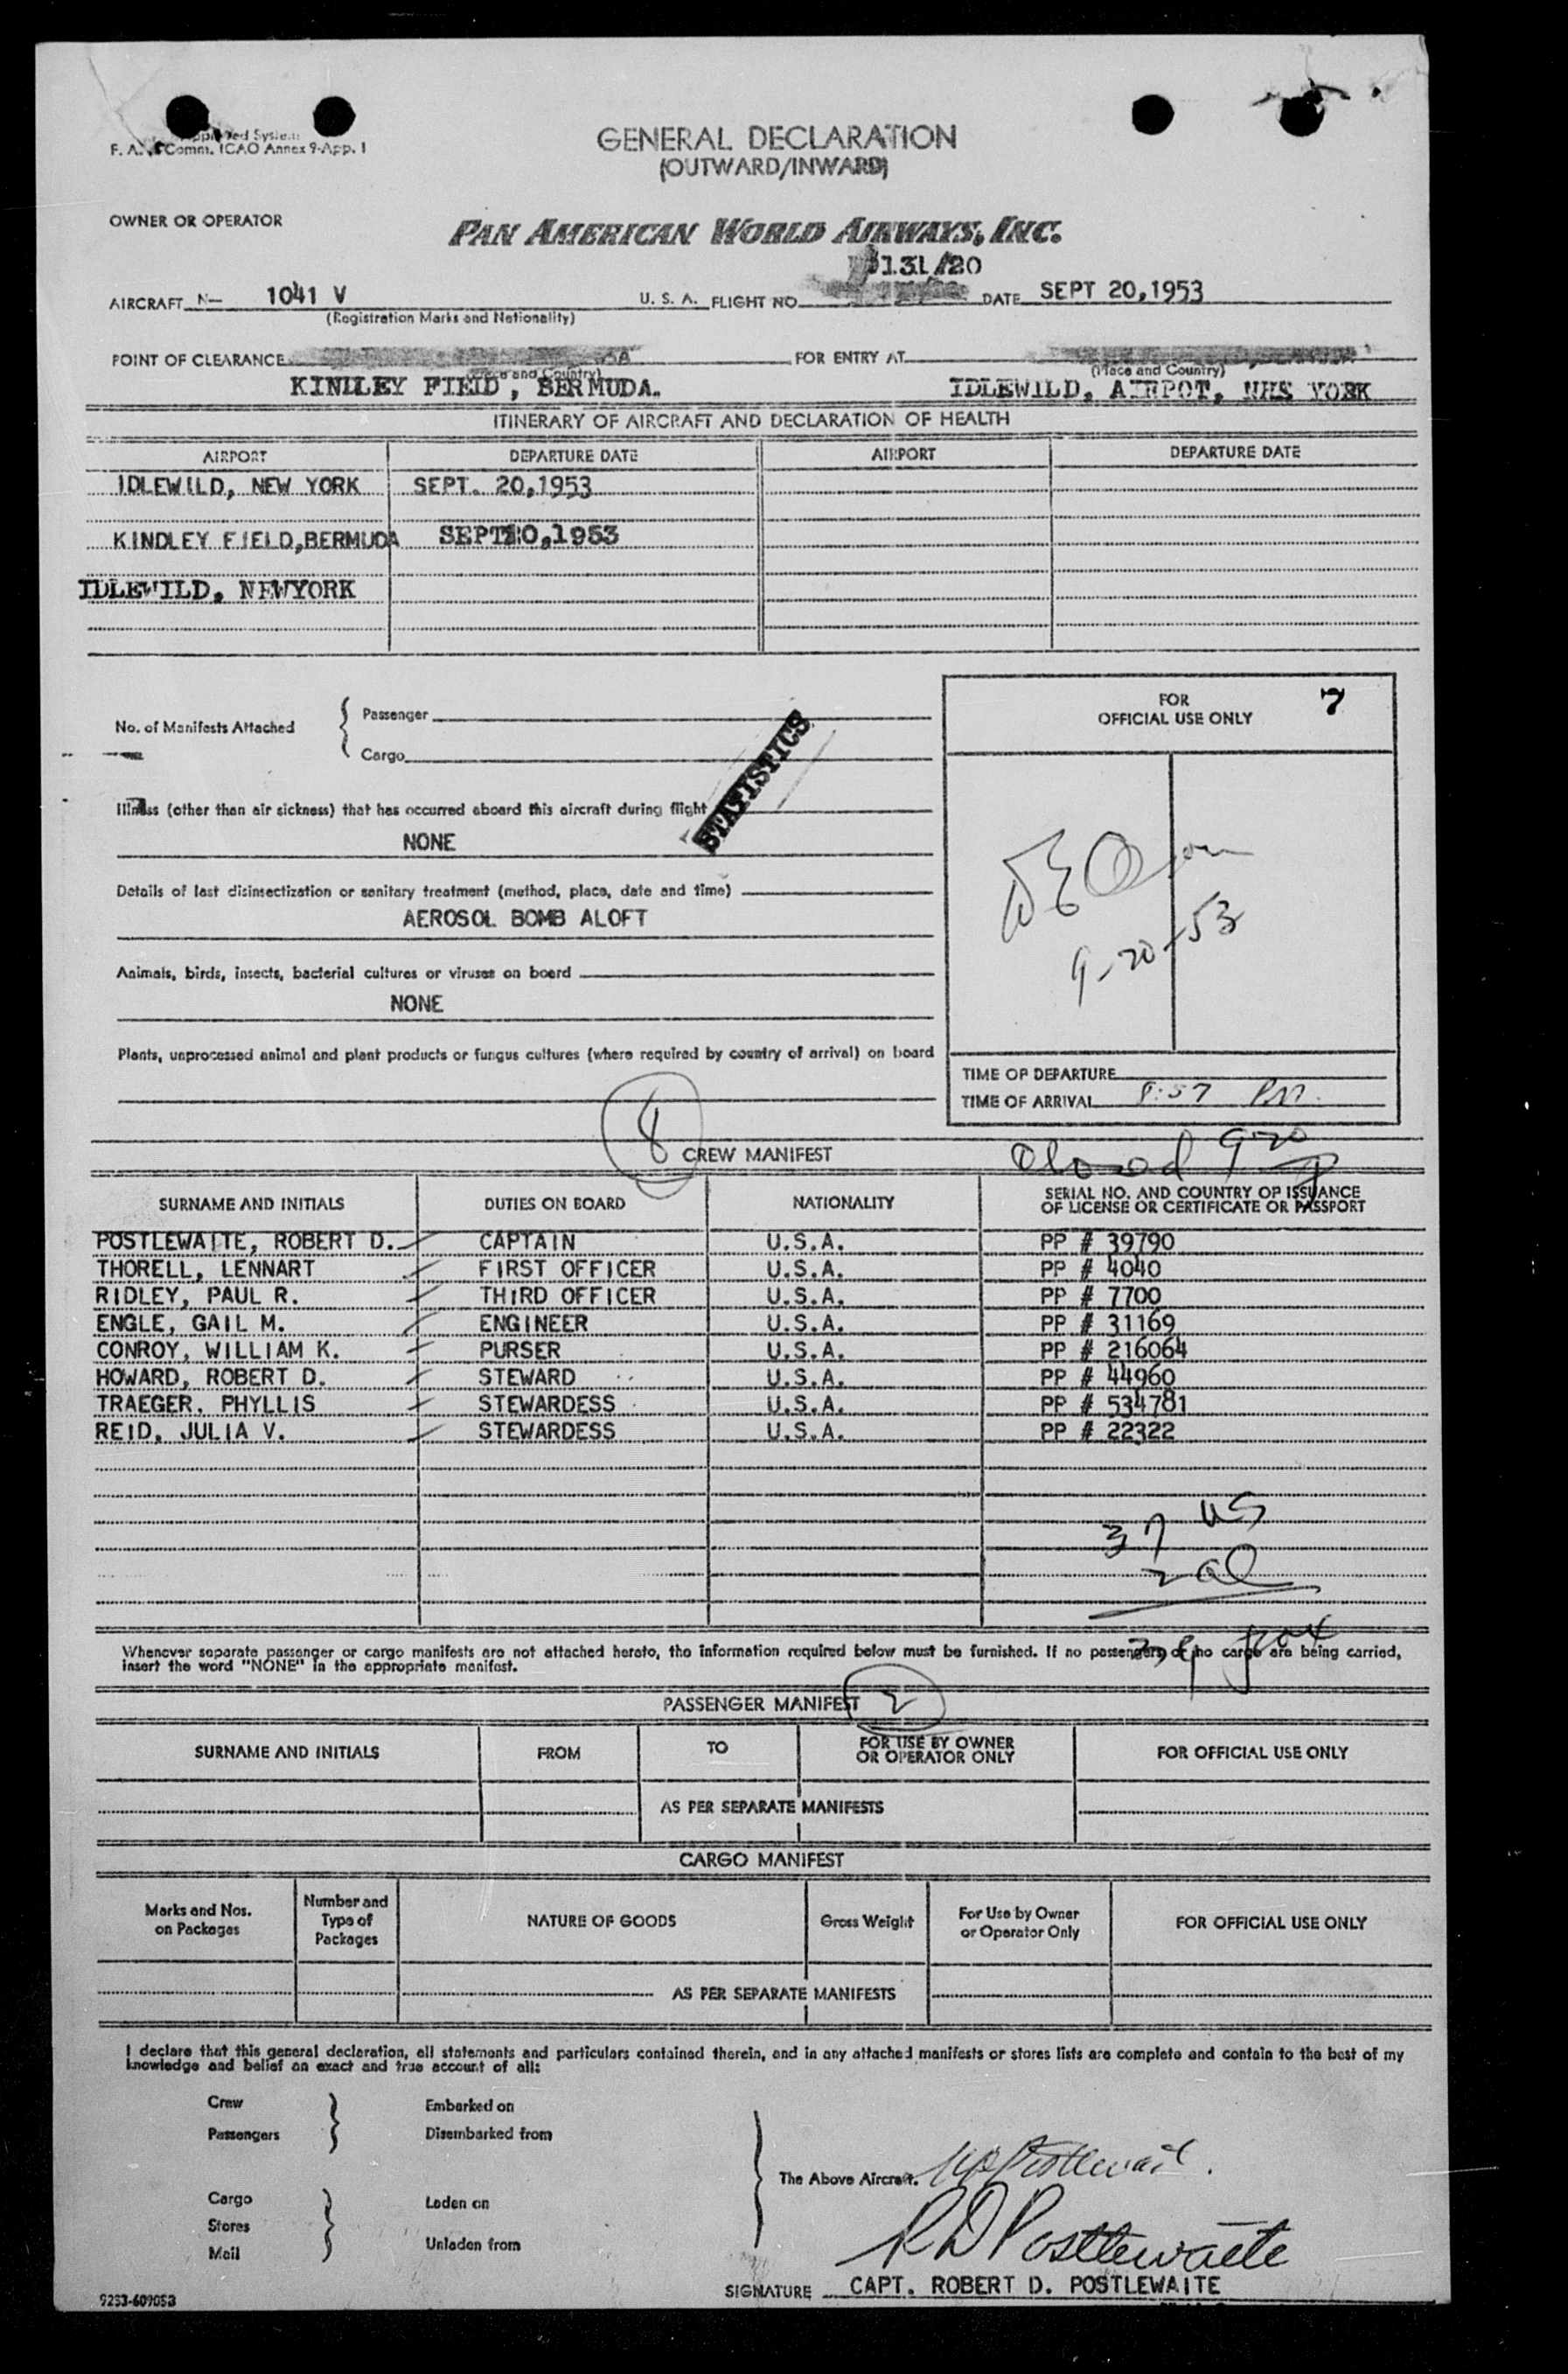 Approved System
F. A. Comm. ICAO Annex 9-App. 1
GENERAL DECLARATION
(OUTWARD/INWARD)
OWNER OR OPERATOR
PAN AMERICAN WORLD AIRWAYS, INC.
131/20
AIRCRAFT N— 1041 V U. S. A. FLIGHT NO DATE SEPT 20,1953
(Registration Marks and Nationality)
POINT OF CLEARANCE FOR ENTRY AT
(Place and Country)
(Place and Country)
KINDLEY FIELD, BERMUDA. IDLEWILD, AIRPOT, YORK
ITINERARY OF AIRCRAFT AND DECLARATION OF HEALTH
AIRPORT DEPARTURE DATE AIRPORT DEPARTURE DATE
IDLEWILD, NEW YORK SEPT. 20,1953
KINDLEY FIELD,BERMUDA SEPT20,1953
IDLEWILD, NEWYORK
FOR
OFFICIAL USE ONLY 7
No. of Manifests Attached
Passenger
Cargo
STATISTICS
Illness (other than air sickness) that has occurred aboard this aircraft during flight
NONE
Details of last disinsectization or sanitary treatment (method, place, date and time)
AEROSOL BOMB ALOFT
9-20-53
Animals, birds, insects, bacterial cultures or viruses on board
NONE
Plants, unprocessed animal and plant products or fungus cultures (where required by country of arrival) on board
TIME OF DEPARTURE
TIME OF ARRIVAL 8:57 PM.
8
CREW MANIFEST
Closed 9-20
SURNAME AND INITIALS DUTIES ON BOARD NATIONALITY SERIAL NO. AND COUNTRY OF ISSUANCE
OF LICENSE OR CERTIFICATE OR PASSPORT
POSTLEWAITE, ROBERT D. CAPTAIN U.S.A. PP # 39790
THORELL, LENNART FIRST OFFICER U.S.A. PP # 4040
RIDLEY, PAUL R. THIRD OFFICER U.S.A. PP # 7700
ENGLE, GAIL M. ENGINEER U.S.A. PP # 31169
CONROY, WILLIAM K. PURSER U.S.A. PP # 216064
HOWARD, ROBERT D. STEWARD U.S.A. PP # 44960
TRAEGER, PHYLLIS STEWARDESS U.S.A. PP # 534781
REID, JULIA V. STEWARDESS U.S.A. PP # 22322
37 US
2 al
Whenever separate passenger or cargo manifests are not attached hereto, the information required below must be furnished. If no passengers or no cargo are being carried,
insert the word "NONE" in the appropriate manifest.
PASSENGER MANIFEST 2
SURNAME AND INITIALS FROM TO FOR USE BY OWNER
OR OPERATOR ONLY FOR OFFICIAL USE ONLY
AS PER SEPARATE MANIFESTS
CARGO MANIFEST
Marks and Nos.
on Packages
Number and
Type of
Packages
NATURE OF GOODS
Gross Weight
For Use by Owner
or Operator Only
FOR OFFICIAL USE ONLY
AS PER SEPARATE MANIFESTS
I declare that this general declaration, all statements and particulars contained therein, and in any attached manifests or stores lists are complete and contain to the best of my
knowledge and belief an exact and true account of all:
Crew Embarked on
Passengers Disembarked from
The Above Aircraft.
Cargo Laden on
Stores
Mail Unladen from
R D Postlewaite
SIGNATURE CAPT. ROBERT D. POSTLEWAITE
9253-609053